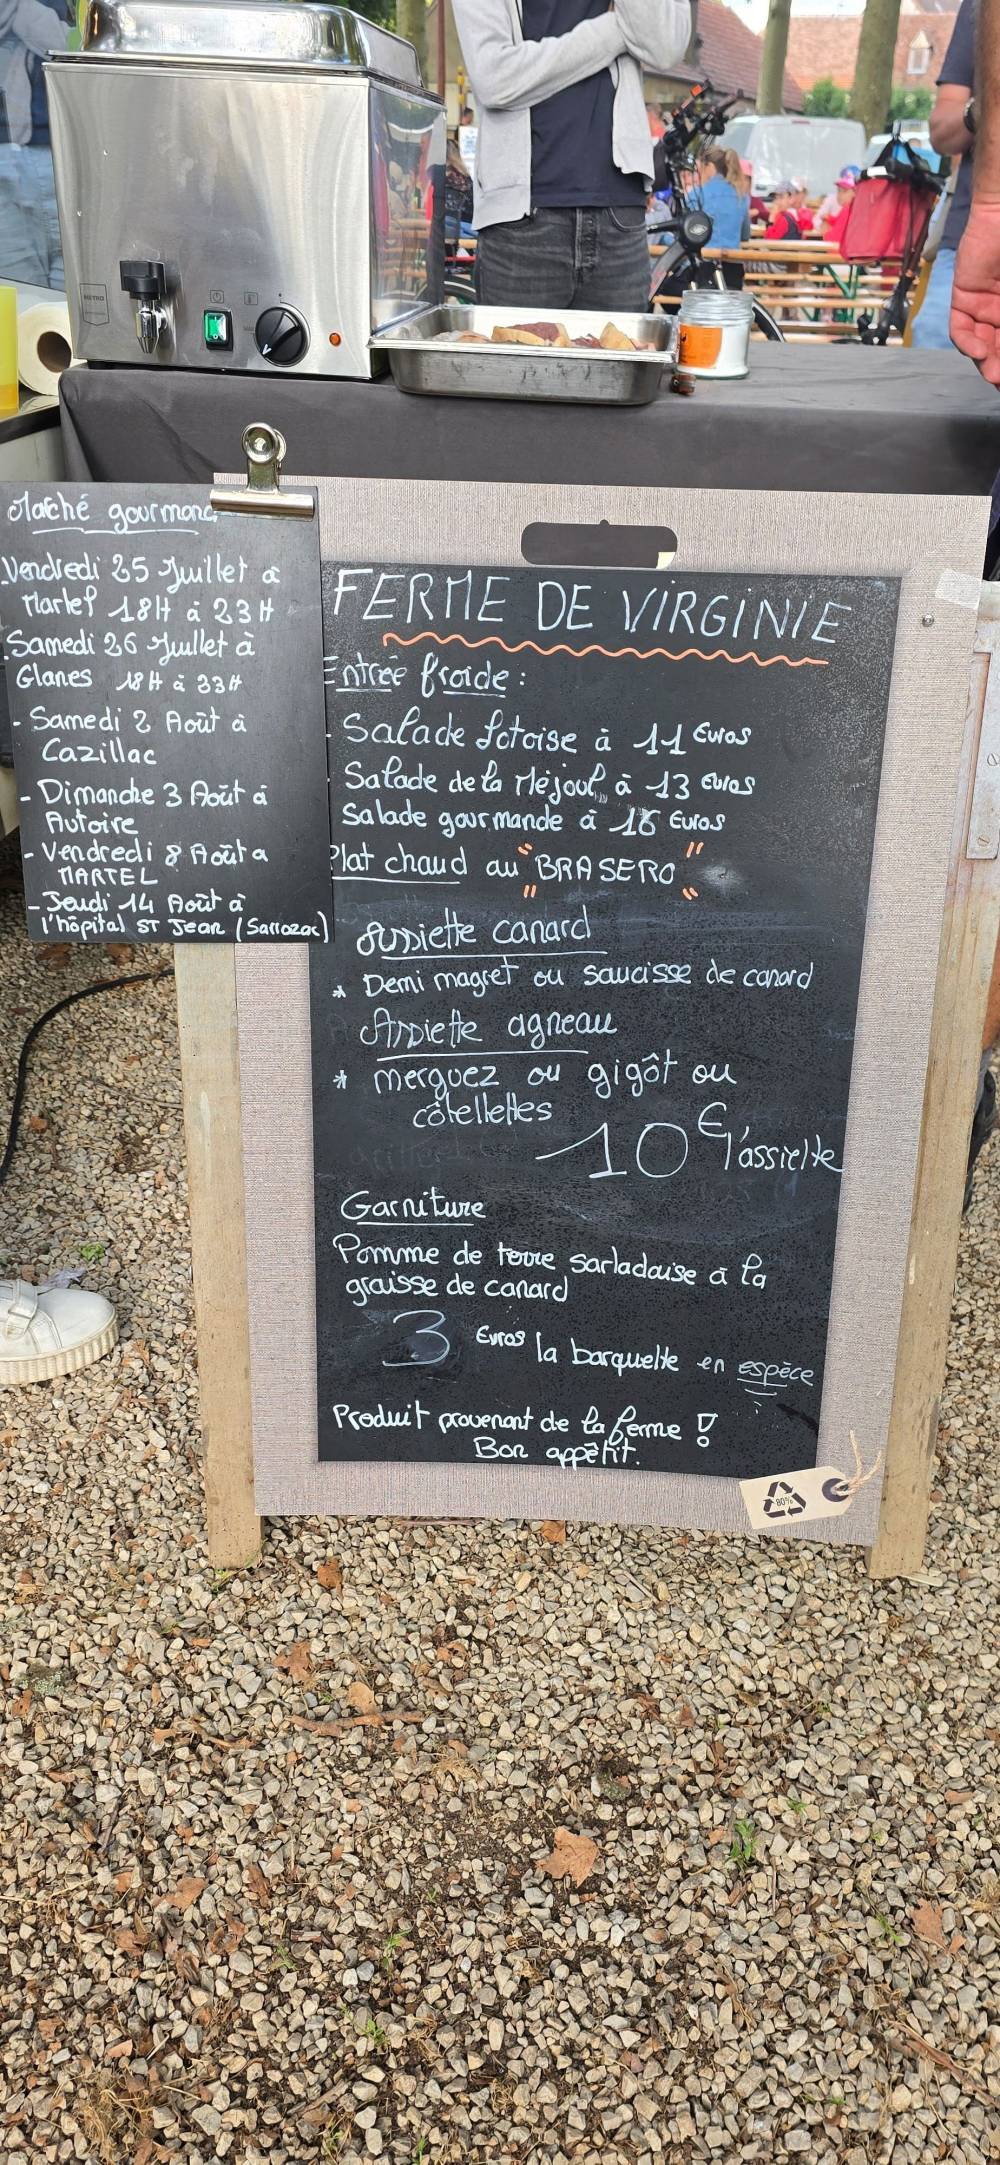 Marché gourmand
Vendredi 25 Juillet à
Martel 18H à 23H
Samedi 26 Juillet à
Glanes 18H à 33H
- Samedi 2 Août à
Cazillac
- Dimanche 3 Août à
Autoire
- Vendredi 8 Août a
MARTEL
- Jeudi 14 Août à
l'hôpital ST Jean (Sarrozac)
FERME DE VIRGINIE
Entrée froide :
- Salade Lotoise à 11 Euros
- Salade de la Méjoul à 13 Euros
Salade gourmande à 16 Euros
Plat chaud au "BRASERO"
Assiette canard
* Demi magret ou saucisse de canard
Assiette agneau
* merguez ou gigôt ou
côtellettes
10 € l'assiette
Garniture
Pomme de terre sarladaise à la
graisse de canard
3 Euros la barquette en espèce
Produit provenant de la ferme !
Bon appétit.
80%
METRO